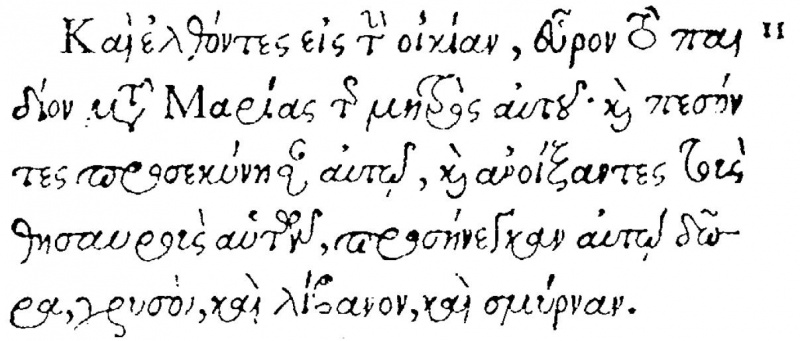 Καὶ ἐλθόντες εἰς τὴν οἰκίαν, εὗρον τὸ παι 11
δίον μετὰ Μαρίας τῆς μητρὸς αὐτοῦ· καὶ πεσόν
τες προσεκύνησαν αὐτῷ, καὶ ἀνοίξαντες τοὺς
θησαυροὺς αὐτῶν, προσήνεγκαν αὐτῷ δῶ
ρα, χρυσὸν, καὶ λίβανον, καὶ σμύρναν.